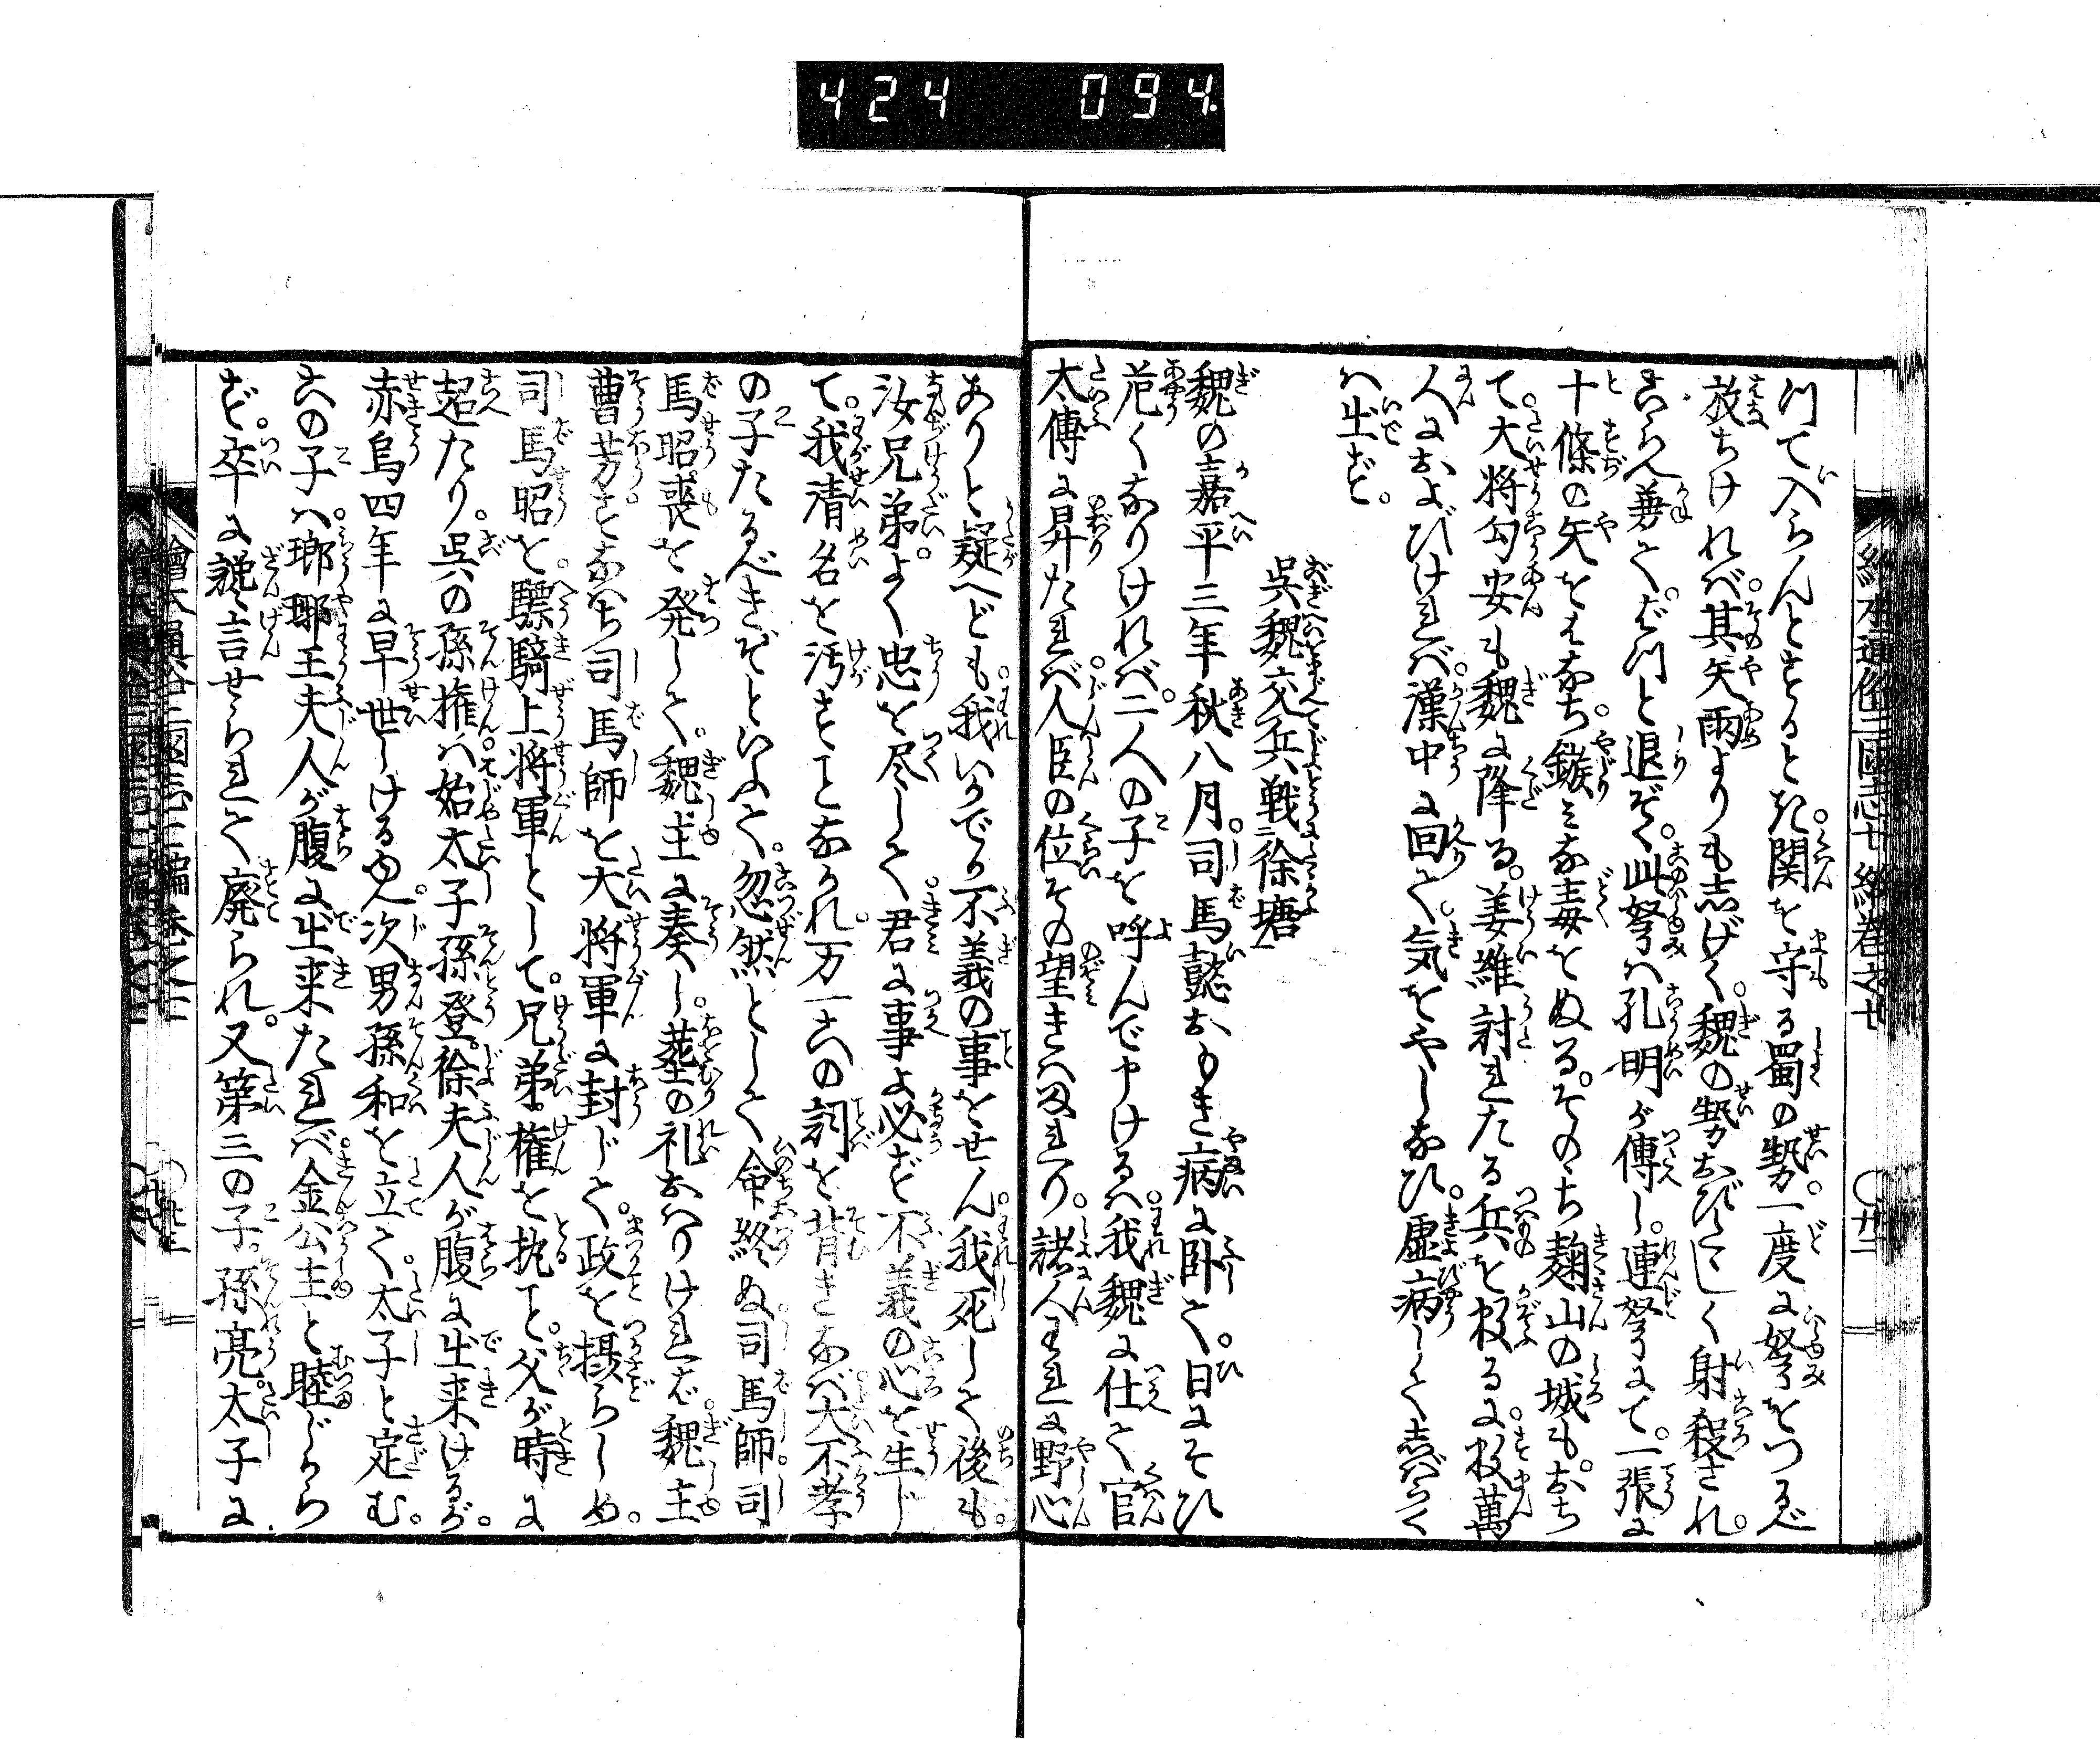 424 094.
繪本通俗三國志七編巻之十
〇廿二
つて入らんとするとき。関を守る蜀の勢。一度に弩をつるべ
放ちければ。其矢雨よりも志げく。魏の勢おびたゞしく射殺され。
こらへ兼て。ばつと退ぞく。此弩ハ孔明が傳へし。連弩にて。一張に
十條の矢をはなち。鏃ミな毒をぬる。そのゝち麹山の城も。おち
て。大将勾安も魏に降る。姜維討れたる兵を投るに。数萬
人におよびければ。漢中に回て。気をやしなひ。虚病して志ばらく
ハ出ず。
呉魏交兵戦徐塘
魏の嘉平三年秋八月。司馬懿おもき病に臥て。日にそひ
危くなりければ。二人の子を呼んで申けるハ。我魏に仕て官
太傅に昇たれば。人臣の位その望きハまれり。諸人われに野心
ありと疑へども。我いかでか不義の事をせん。我死して後も。
汝兄弟。よく忠を尽して。君に事よ必ず不義の心を生じ
て。我清名を汚すことなかれ。万一この詞を背きなば。大不孝
の子たるべきぞといふて。忽然として命終ぬ。司馬師。司
馬昭。喪を発して。魏主に奏し。葬の礼おハりければ。魏主
曹芳。すなハち司馬師を大将軍に封じて。政を摂らしめ。
司馬昭を。驃騎上将軍として。兄弟。権を執こと。父が時に
超たり。呉の孫権ハ。始太子孫登。徐夫人が腹に出来けるが。
赤烏四年に早世しけるゆへ。次男孫和を立て。太子と定む。
この子ハ。瑯琊王夫人が腹に出来たれば。金公主と睦じから
ず。卒に讒言せられて廃られ。又第三の子。孫亮。太子に